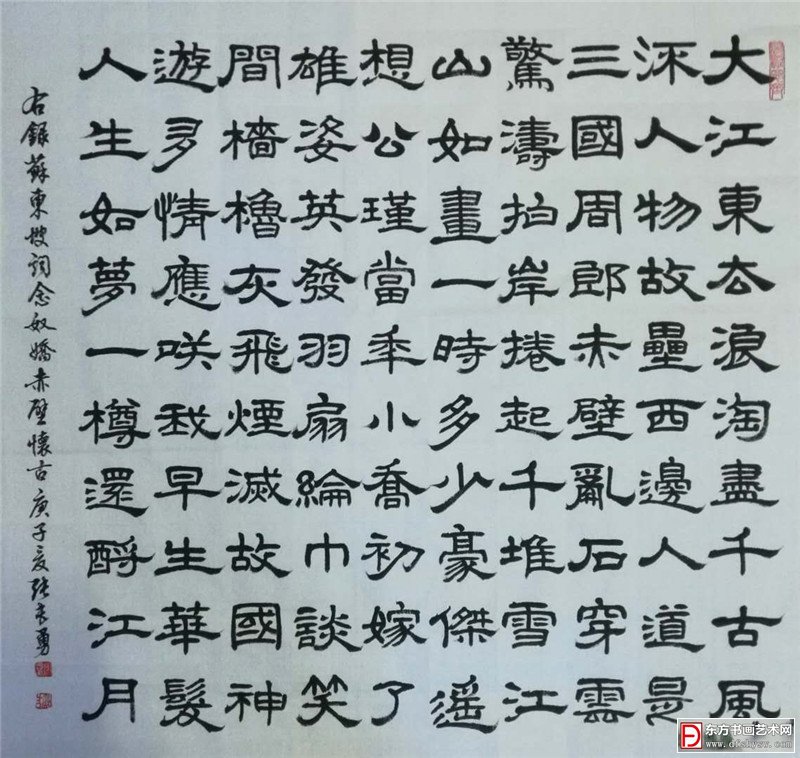 大江東去浪淘盡千古風
流人物故壘西邊人道是
三國周郎赤壁亂石穿雲
驚濤拍岸捲起千堆雪江
山如畫一時多少豪傑遥
想公瑾當年小喬初嫁了
雄姿英發羽扇綸巾談笑
間檣櫓灰飛煙滅故國神
遊多情應咲我早生華髮
人生如夢一樽還酹江月
右録蘇東坡詞念奴嬌赤壁懷古庚子夏張勇
东方书画艺术网
www.dfshysw.com